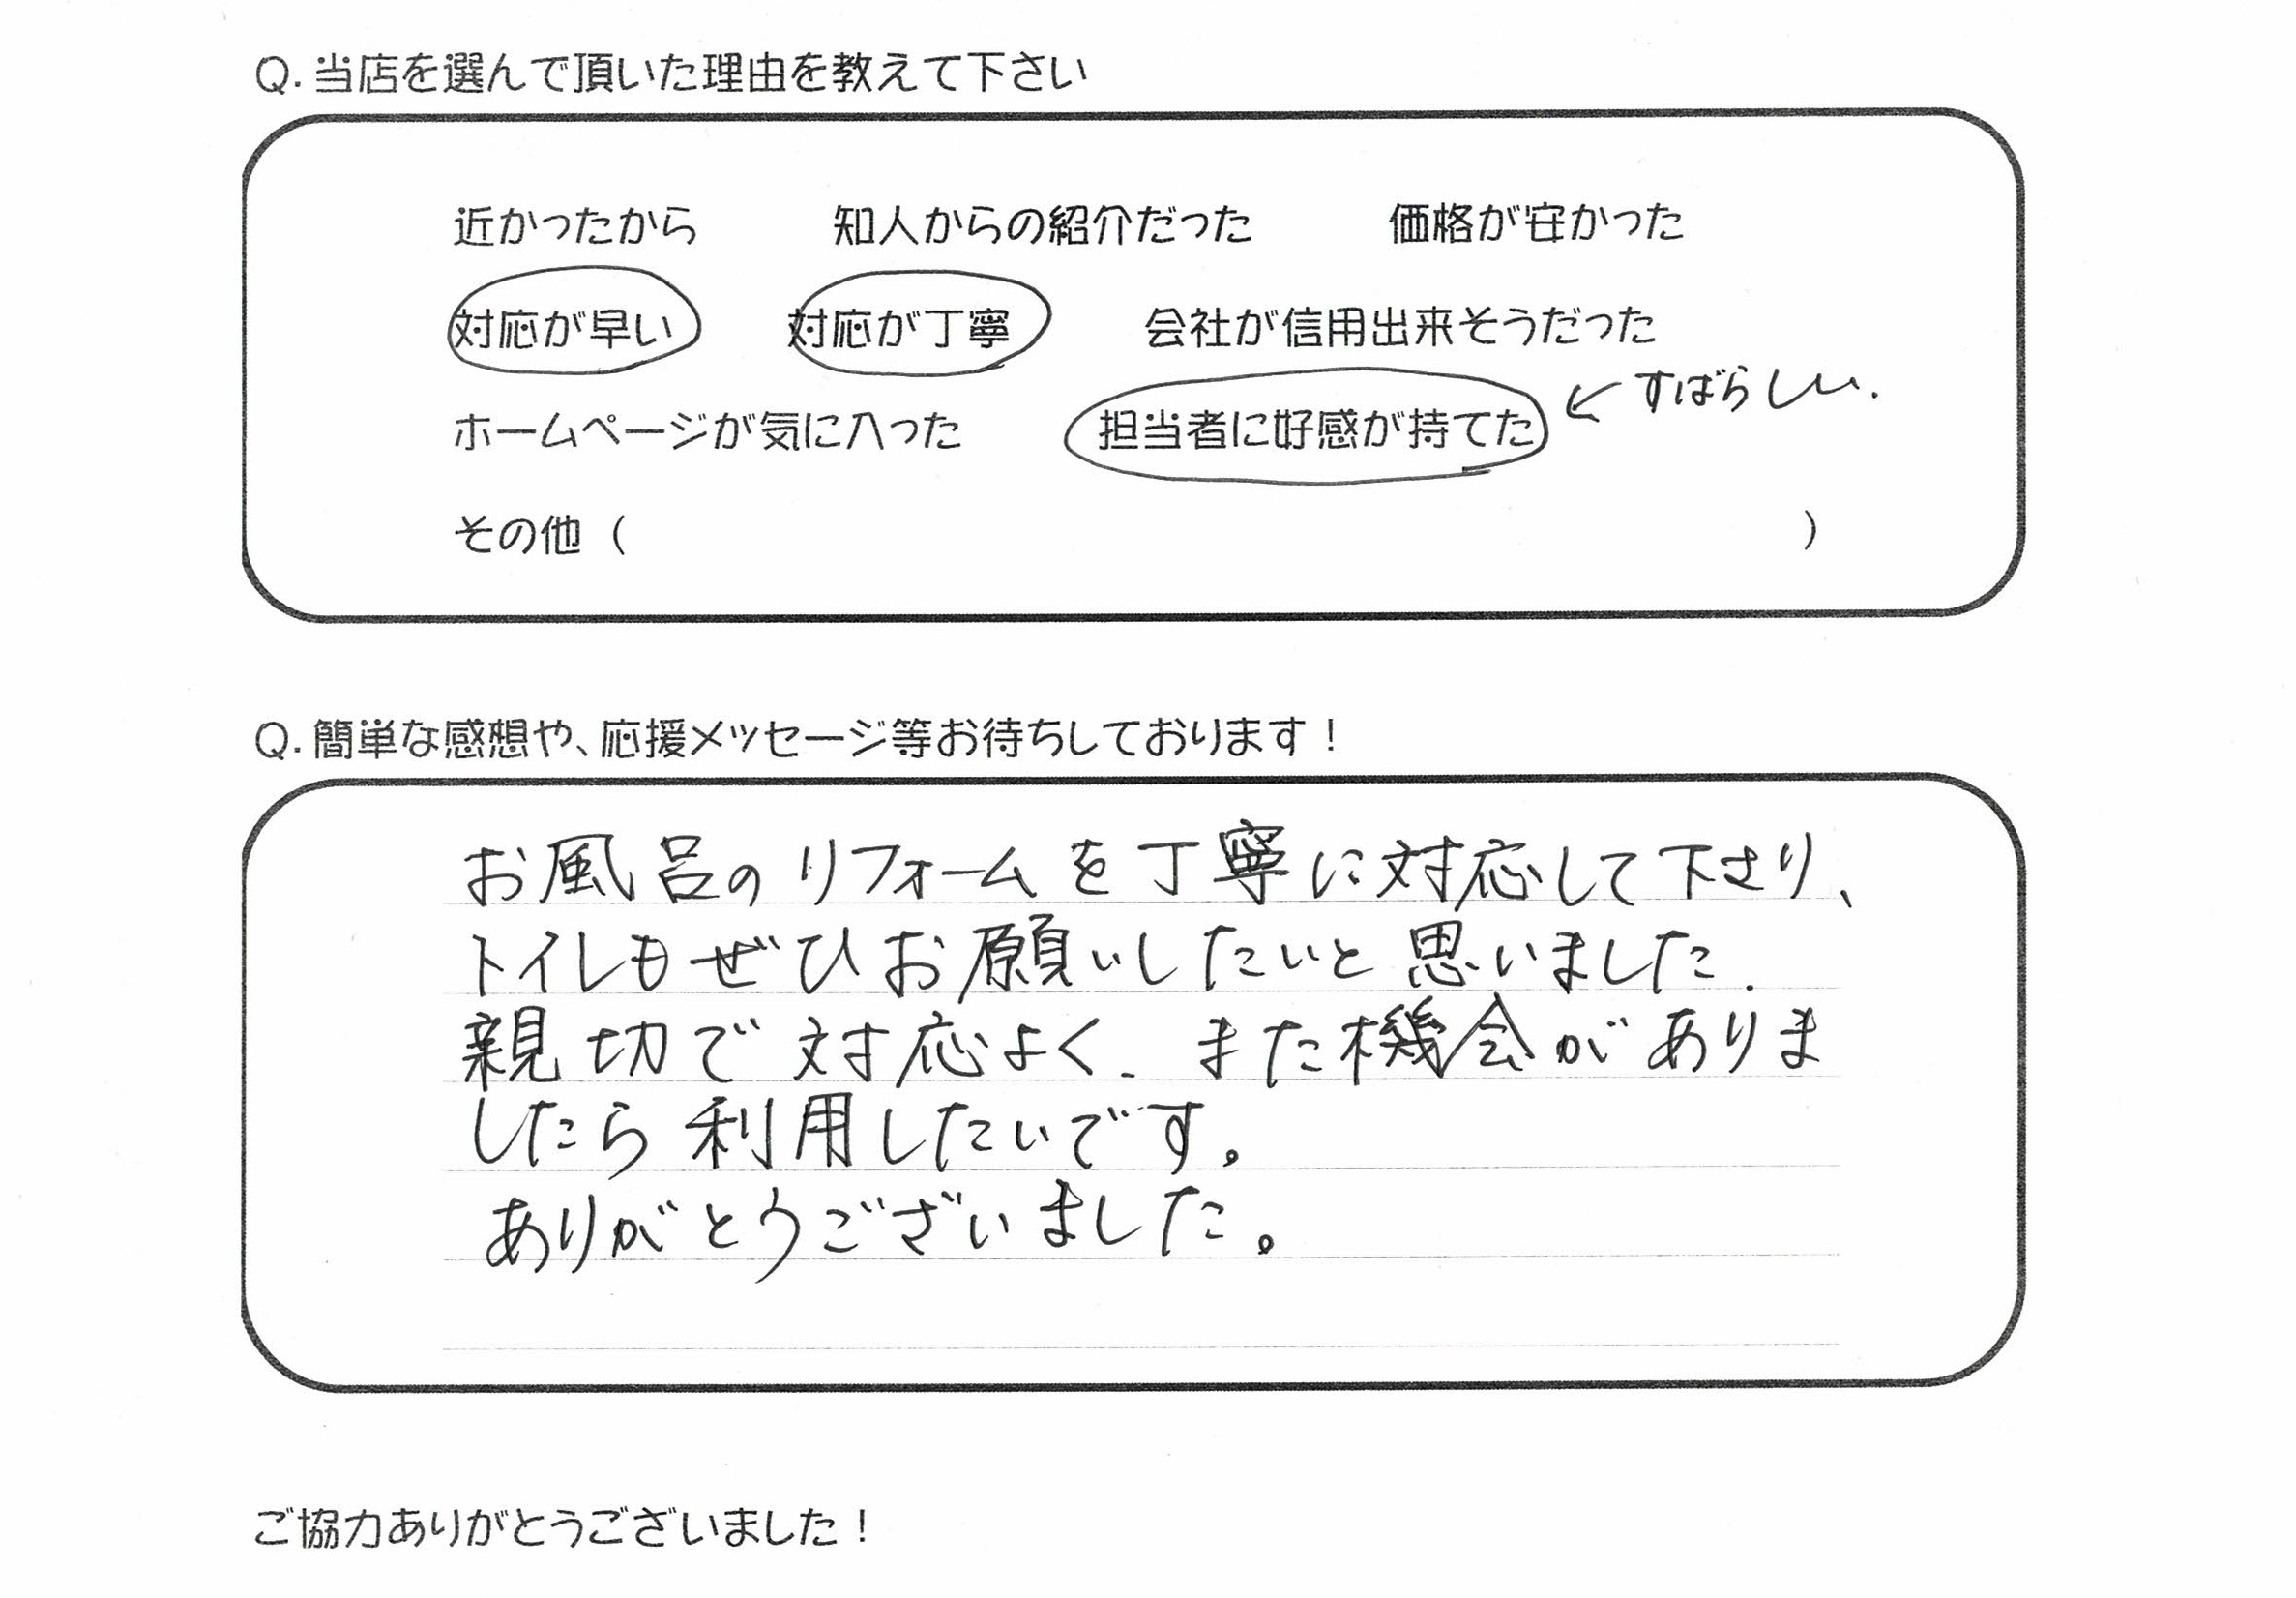 Q.当店を選んで頂いた理由を教えて下さい
近かったから 知人からの紹介だった 価格が安かった
対応が早い 対応が丁寧 会社が信用出来そうだった
ホームページが気に入った 担当者に好感が持てた ← すばらしい.
その他( )
Q.簡単な感想や、応援メッセージ等お待ちしております!
お風呂のリフォームを丁寧に対応して下さり、
トイレもぜひお願いしたいと思いました.
親切で対応よく、また機会がありま
したら利用したいです。
ありがとうございました。
ご協力ありがとうございました!